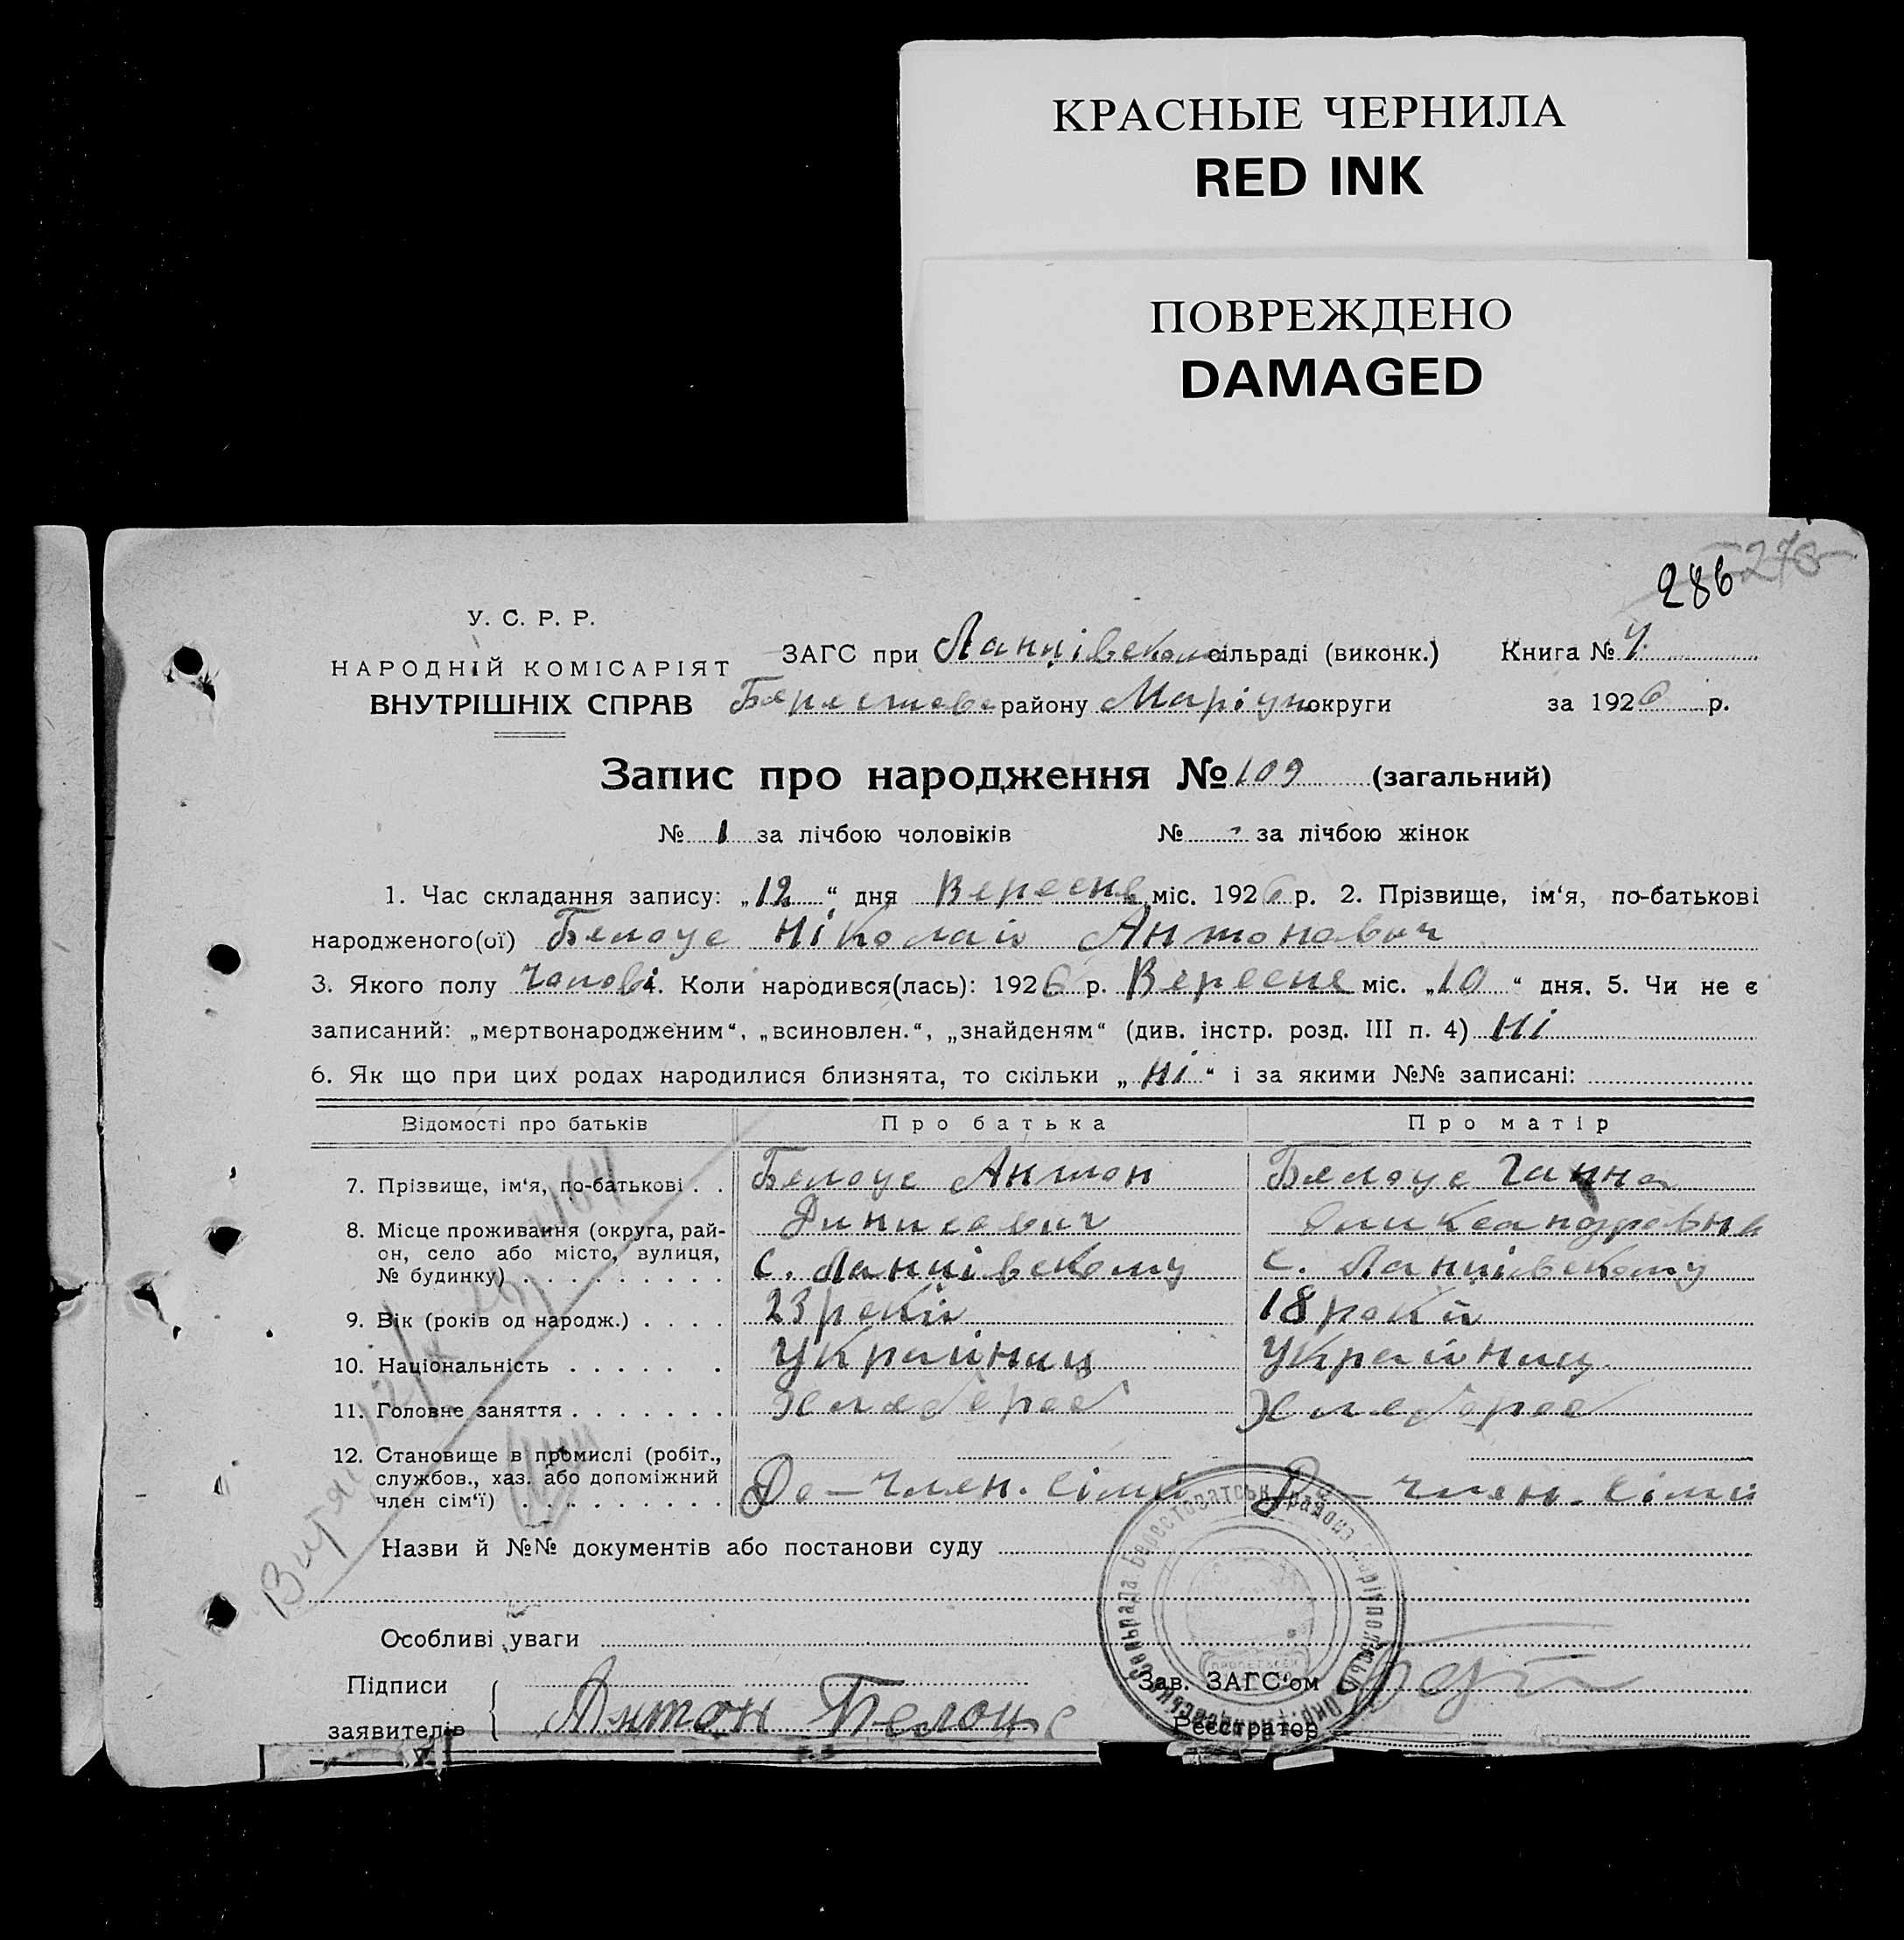 КРАСНЫЕ ЧЕРНИЛА
RED INK
ПОВРЕЖДЕНО
DAMAGED
286 278
У. С. Р. Р.
НАРОДНІЙ КОМІСАРІЯТ
ВНУТРІШНІХ СПРАВ
ЗАГС при Ланцівской сільраді (виконк.) Книга № 4
Берестово району Маріуп округи за 1926 р.
Запис про народження № 109 (загальний)
№ 1 за лічбою чоловіків № - за лічбою жінок
1. Час складання запису: „12“ дня Вересня міс. 1926 р. 2. Прізвище, ім‘я, по-батькові
народженого(ої) Белоус Ніколай Антонович
3. Якого полу Чолові 4. Коли народився(лась): 1926 р. Вересня міс. „10“ дня. 5. Чи не є
записаний: „мертвонародженим“, „всиновлен.“, „знайденям“ (див. інстр. розд. III п. 4) Ні
6. Як що при цих родах народилися близнята, то скільки „Ні“ і за якими №№ записані:
Відомості про батьків Про батька Про матір
7. Прізвище, ім‘я, по-батькові . . Белоус Антон Белоус Ганна
8. Місце проживання (округа, рай- Динисович Олександровна
он, село або місто, вулиця,
№ будинку) . . . . . . . . . с. Ланцівскому с. Ланцівскому
9. Вік (років од народж.) . . . . 23 рокій 18 рокій
10. Національність . . . . . . Украйниц Украйниц
11. Головне заняття . . . . . . . Хлебороб Хлебороб
12. Становище в промислі (робіт.,
службов., хаз. або допоміжний
член сім‘ї) . . . . . . . . . До – член. сімий До – член. сімий
Назви й №№ документів або постанови суду
Особливі уваги
Підписи
заявителів Антон Белоус
Зав. ЗАГС‘ом
Реєстратор